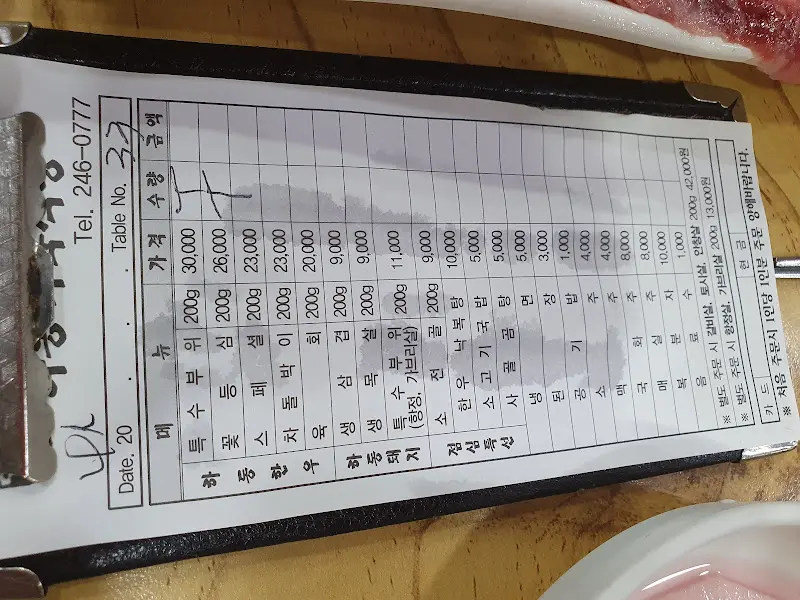 Tel. 246-0777
Date. 20 . . Table No. 33
메 뉴 가 격 수 량 금 액
하동한우
특 수 부 위 200g 30,000
꽃 등 심 200g 26,000
스 페 셜 200g 23,000
차 돌 박 이 200g 23,000
육 회 200g 20,000
하동돼지
생 삼 겹 200g 9,000
생 목 살 200g 9,000
특 수 부 위 (항정, 가브리살) 200g 11,000
소 전 골 200g 9,000
점심특선
한 우 낙 복 탕 10,000
소 고 기 국 밥 5,000
사 골 곰 탕 5,000
냉 면 5,000
된 장 3,000
공 기 밥 1,000
소 주 4,000
맥 주 4,000
국 화 주 8,000
매 실 주 8,000
복 분 자 10,000
음 료 수 1,000
※ 별도 주문 시 갈비살, 토시살, 안창살 200g 42,000원
※ 별도 주문 시 항정살, 가브리살 200g 13,000원
카 드 현 금
※ 처음 주문시 1인당 1인분 주문 양해바랍니다.